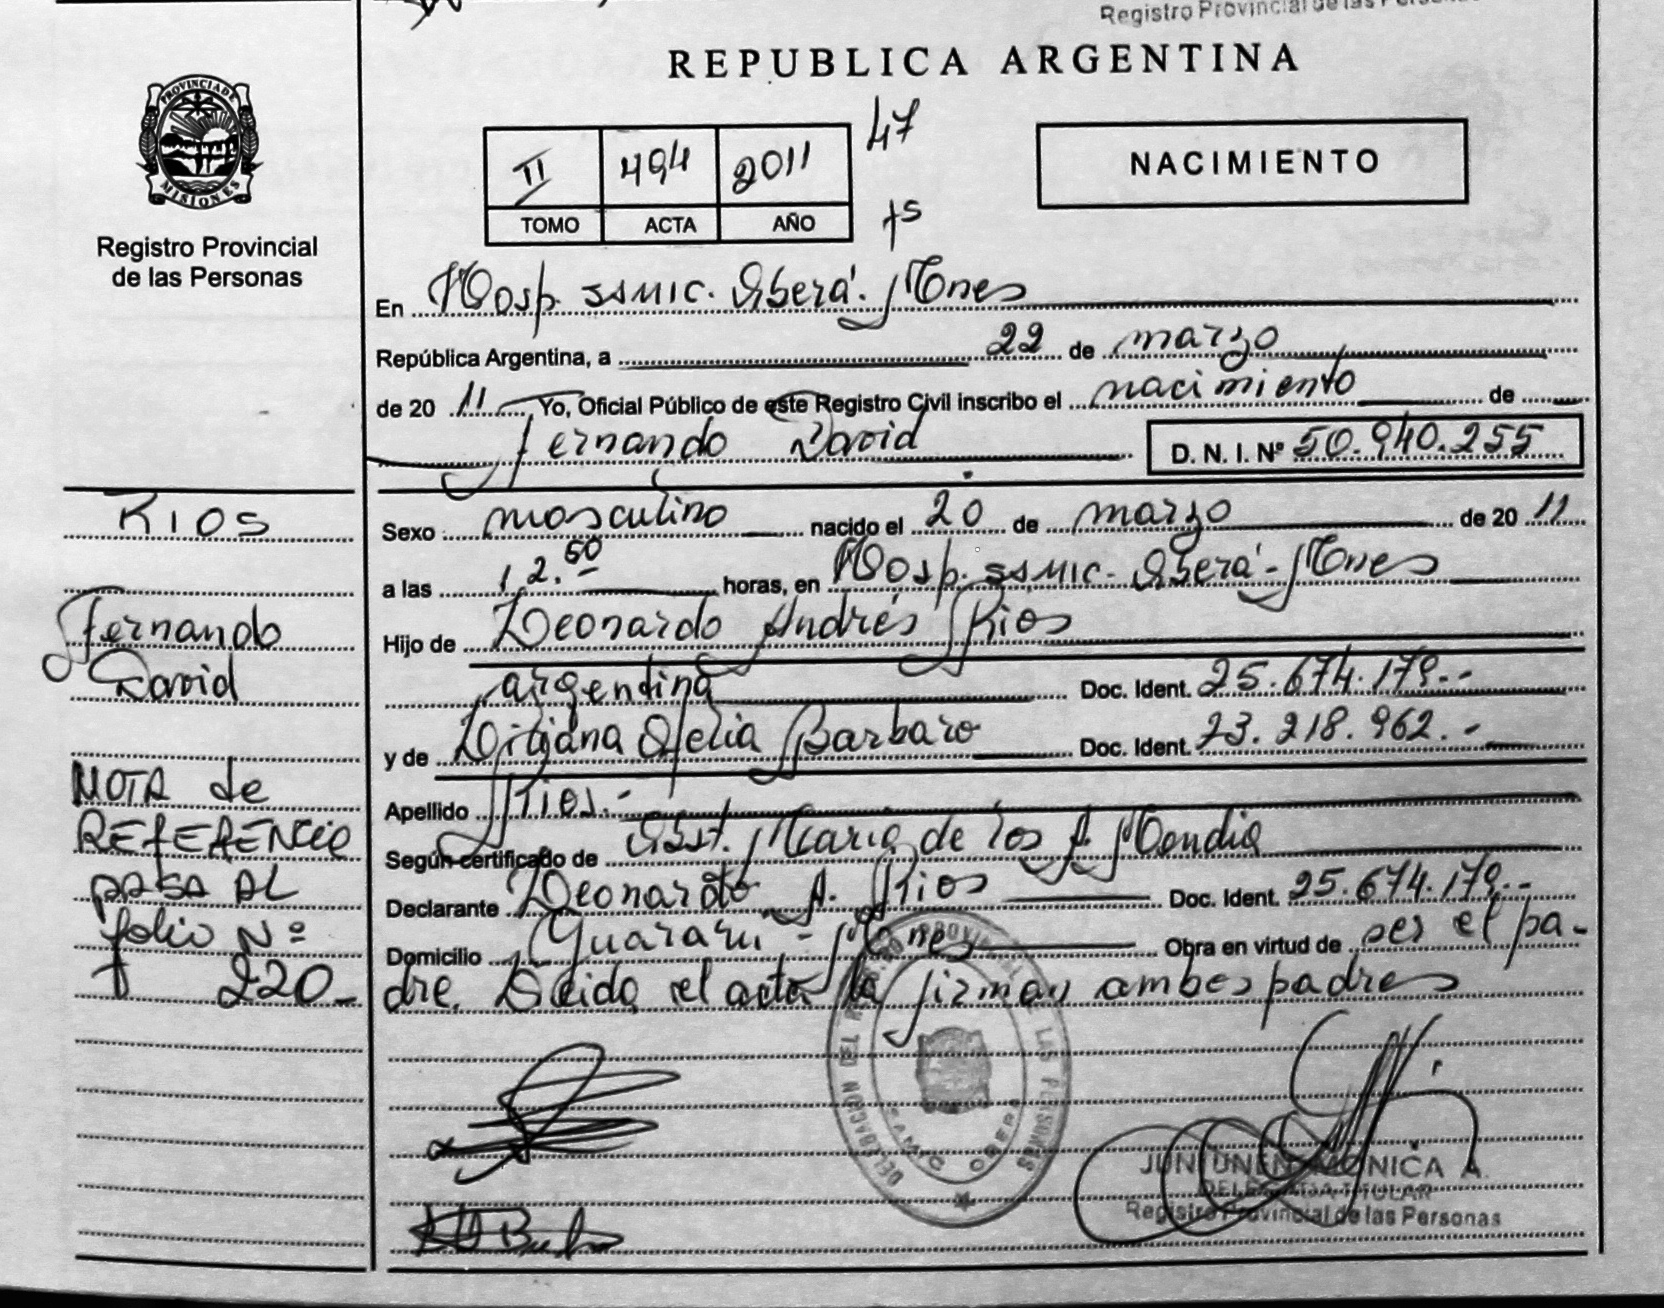 Registro Provincial de las Personas
REPUBLICA ARGENTINA
PROVINCIA DE
MISIONES
Registro Provincial
de las Personas
II 494 2011 47
TOMO ACTA AÑO
NACIMIENTO
En Hosp. SSMIC. Oberá. Mnes
República Argentina, a 22 de marzo
de 20 11 Yo, Oficial Público de este Registro Civil inscribo el nacimiento de
Fernando David D. N. I. Nº 50.940.255
RIOS
Fernando
David
NOTA de
REFERENCIA
PASA AL
folio Nº
220-
Sexo masculino nacido el 20 de marzo de 20 11
a las 12.50 horas, en Hosp. SSMIC- Oberá- Mnes
Hijo de Leonardo Andrés Rios
argentina Doc. Ident. 25.674.179.--
y de Liliana Ofelia Barbaro Doc. Ident. 23.218.962.-
Apellido Rios.-
Según certificado de Obst. Maria de los A. Mendia
Declarante Leonardo A. Rios Doc. Ident. 25.674.179.--
Domicilio Guarani - Mnes Obra en virtud de ser el pa-
dre. Leida el acta la firman ambos padres
REGISTRO PROVINCIAL DE LAS PERSONAS
DELEGACION
OBERA
JUNTUNEN MONICA A.
DELEGADA TITULAR
Registro Provincial de las Personas